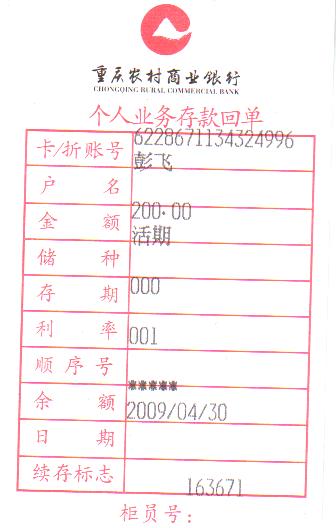 重庆农村商业银行
CHONGQING RURAL COMMERCIAL BANK
个人业务存款回单
卡/折账号 6228671134324996
户名 彭飞
金额 200.00
储种 活期
存期 000
利率
顺序号 001
余额 *****
日期 2009/04/30
续存标志
163671
柜员号：